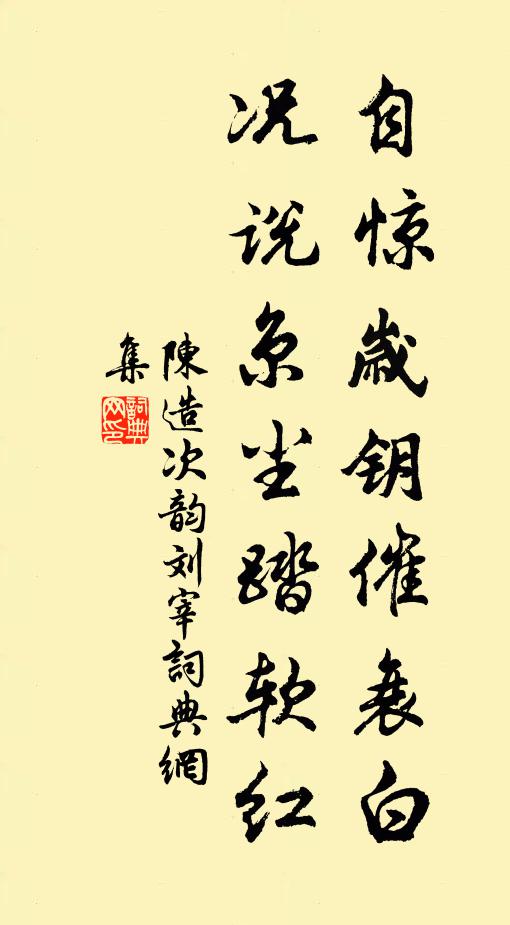 自惊岁钥催衰白
况说京尘踏软红
陳造次韵刘宰詞典網
集
詞典网印